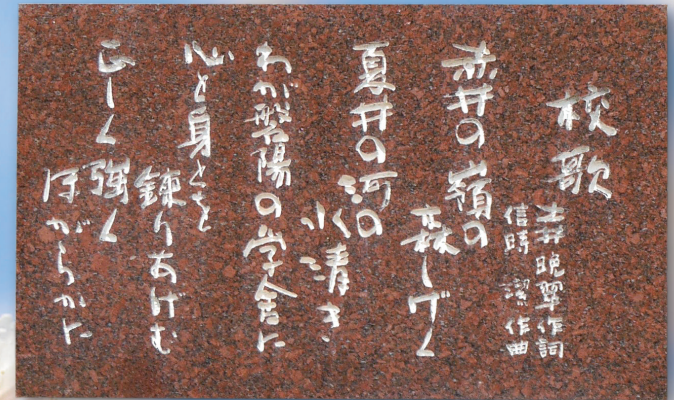 校歌
土井晩翠作詞
信時潔作曲
赤井の嶺の
森しげく
夏井の河の
水清き
わが磐陽の学舎に
心と身とを
錬りあげむ
正しく強く
ほがらかに